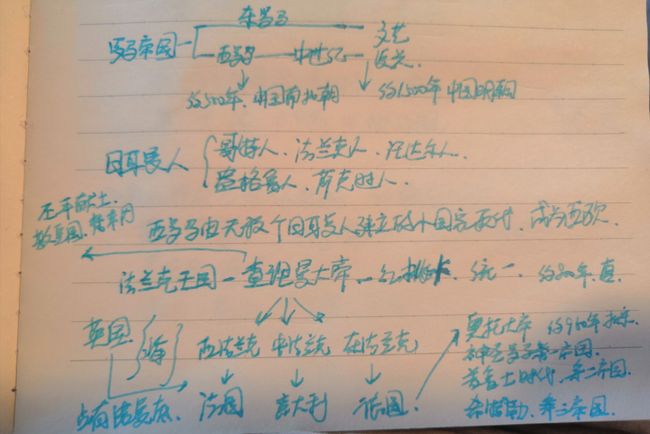 东罗马
罗马帝国 西罗马 中世纪 文艺
复兴.
约500年.中国南北朝 约1500年 中国明朝
日耳曼人 哥特人、法兰克人、汪达尔人.
盎格鲁人、萨克逊人.
丕平献土.
教皇国.
西罗马由无数个日耳曼人建立的小国家取代,成为西欧.
法兰克王国 查理曼大帝 红桃K. 统一. 约800年.
英国 西法兰克 中法兰克 东法兰克
占有诺曼底. 法国 意大利 德国.
奥托大帝 约960年
神圣罗马 第一帝国.
普鲁士时代.第二帝国.
希特勒.第三帝国.